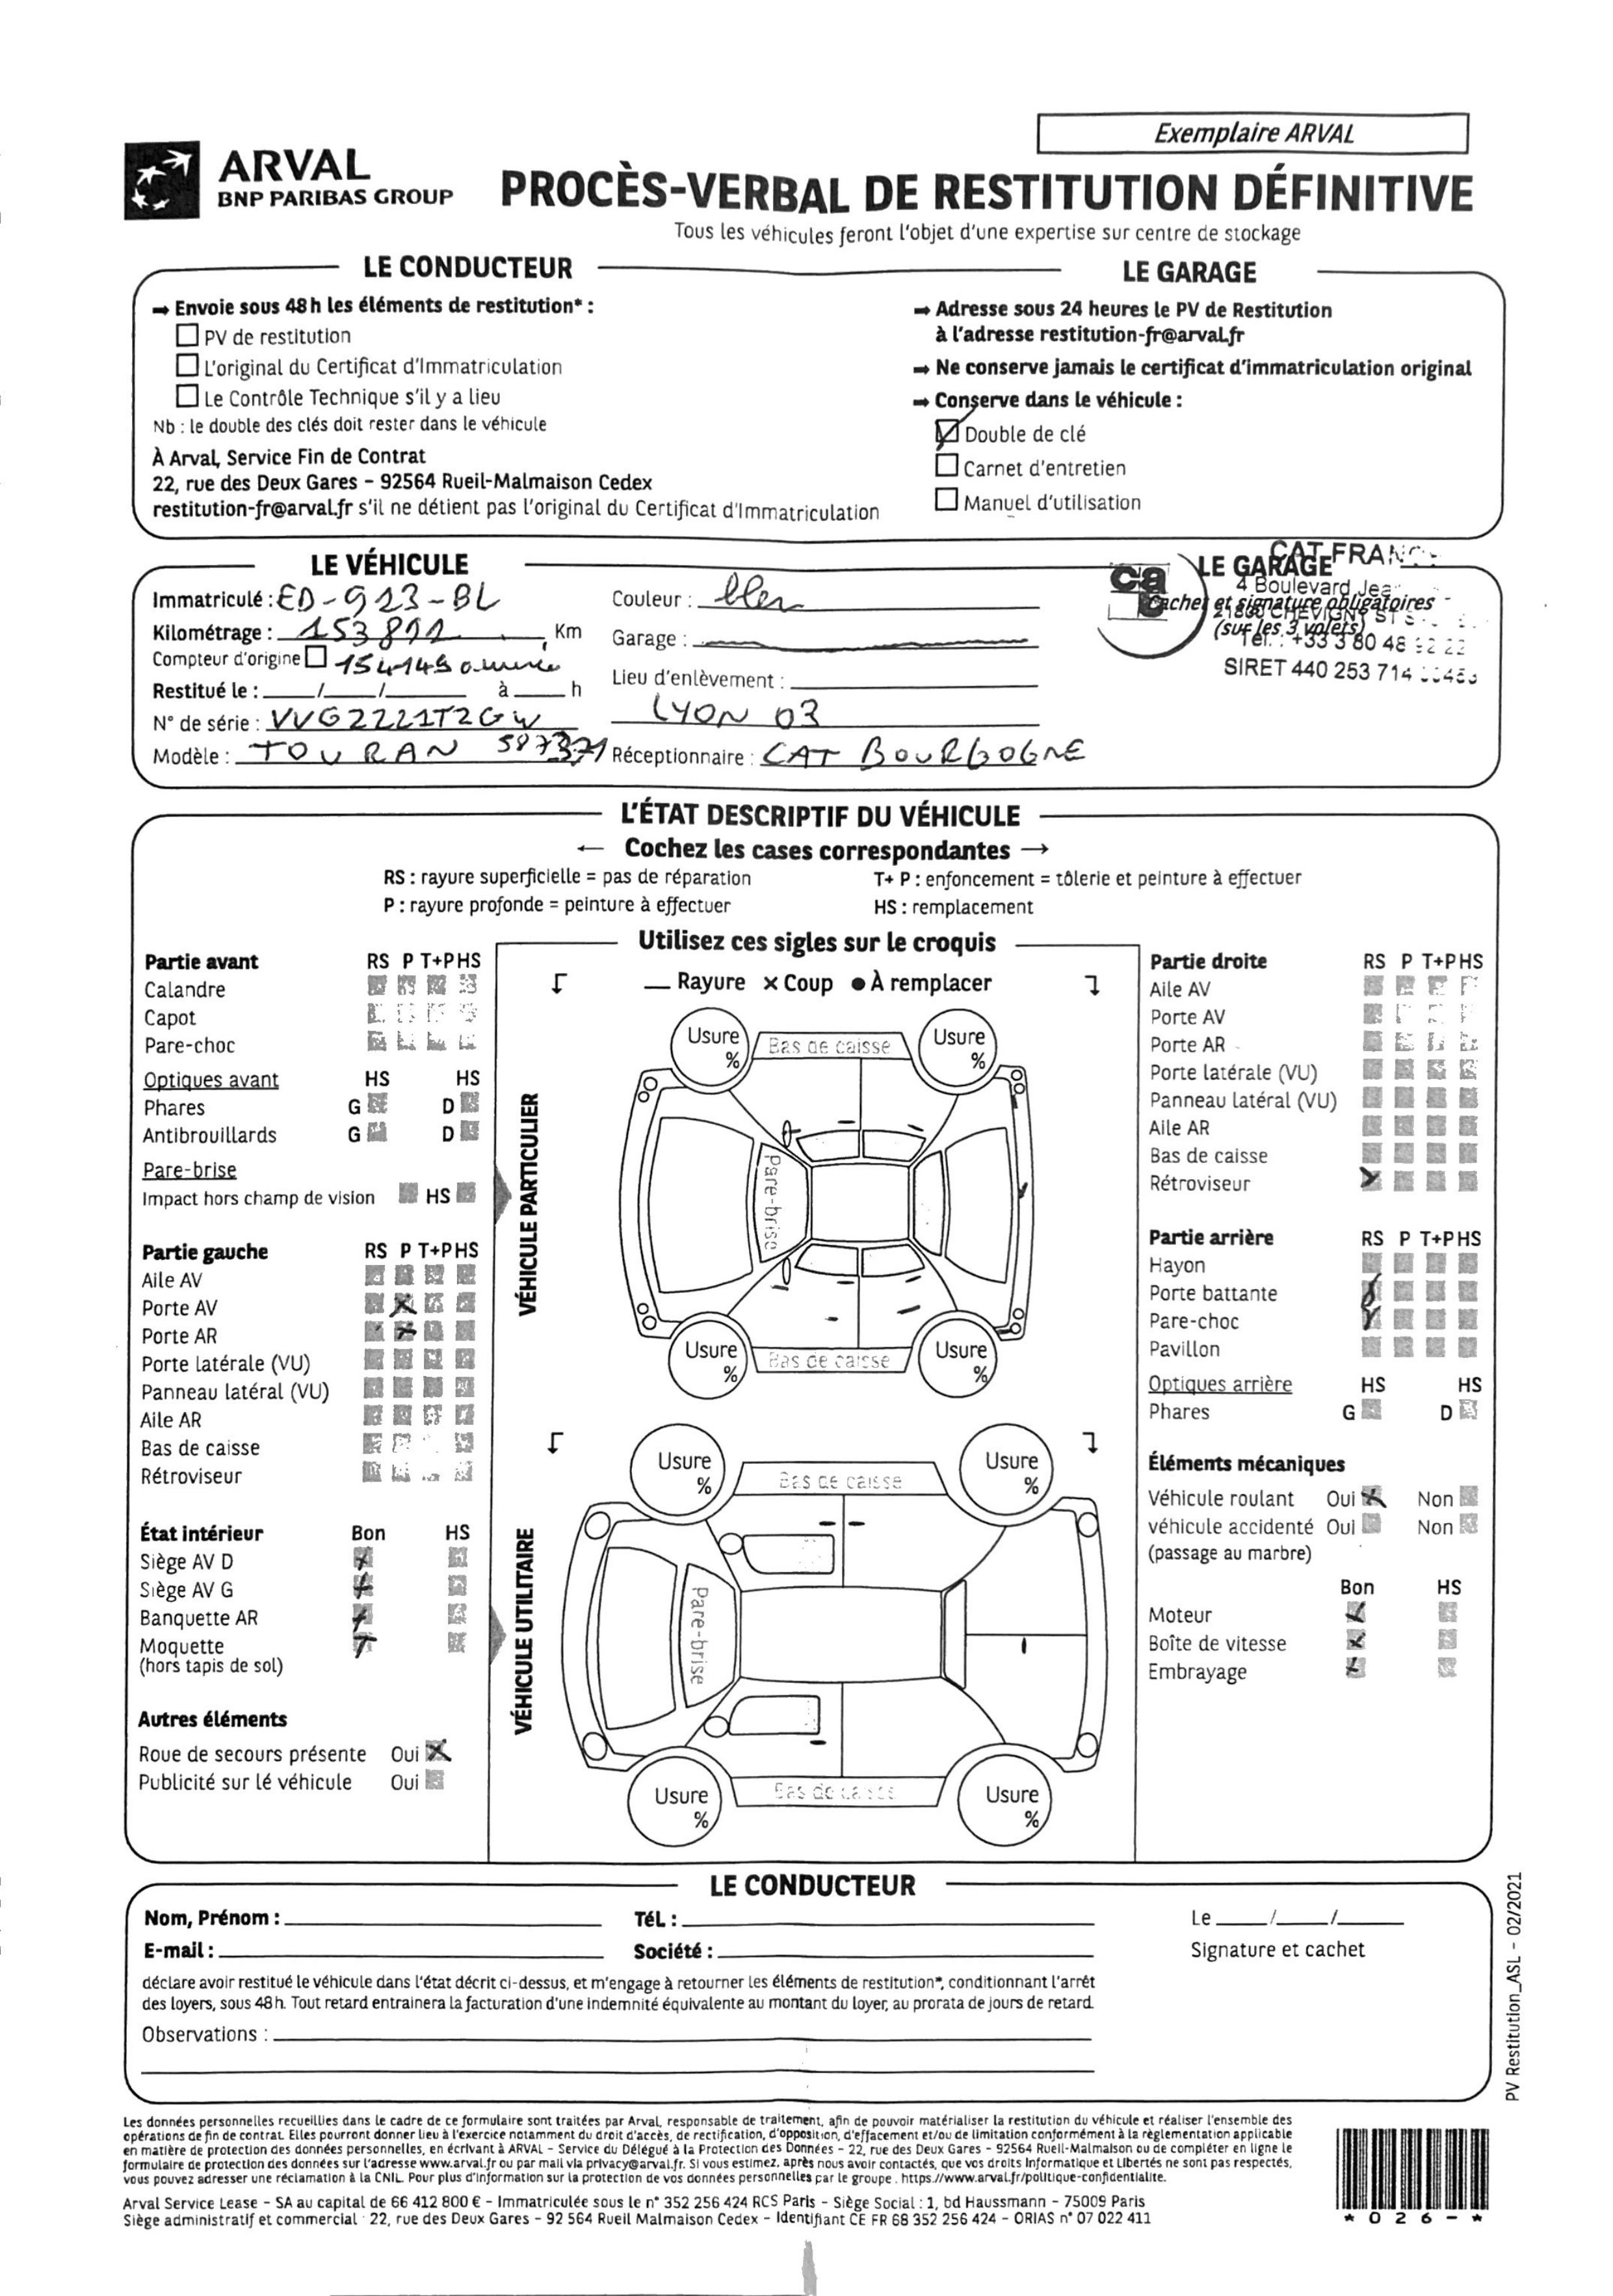 Exemplaire ARVAL
ARVAL
BNP PARIBAS GROUP
PROCÈS-VERBAL DE RESTITUTION DÉFINITIVE
Tous les véhicules feront l'objet d'une expertise sur centre de stockage
LE CONDUCTEUR
➡ Envoie sous 48 h les éléments de restitution* :
PV de restitution
L'original du Certificat d'Immatriculation
Le Contrôle Technique s'il y a lieu
Nb : le double des clés doit rester dans le véhicule
À Arval, Service Fin de Contrat
22, rue des Deux Gares - 92564 Rueil-Malmaison Cedex
restitution-fr@arval.fr s'il ne détient pas l'original du Certificat d'Immatriculation
LE GARAGE
➡ Adresse sous 24 heures le PV de Restitution
à l'adresse restitution-fr@arval.fr
➡ Ne conserve jamais le certificat d'immatriculation original
➡ Conserve dans le véhicule :
Double de clé
Carnet d'entretien
Manuel d'utilisation
LE VÉHICULE
Immatriculé : ED-923-BL
Kilométrage : 153891 Km
Compteur d'origine 154149
Restitué le : / / à h
N° de série : VVG2221T2GW
Modèle : TOURAN 587371
Couleur : bleu
Garage :
Lieu d'enlèvement :
LYON 03
Réceptionnaire : CAT BOURGOGNE
LE GARAGE
Cachet et signature obligatoires
(sur les 3 volets)
cat
CAT FRANC
4 Boulevard Jea
21800 CHEVIGNY ST S
Tél. : +33 3 80 48 92 22
SIRET 440 253 714
L'ÉTAT DESCRIPTIF DU VÉHICULE
← Cochez les cases correspondantes →
RS : rayure superficielle = pas de réparation
P : rayure profonde = peinture à effectuer
T+ P : enfoncement = tôlerie et peinture à effectuer
HS : remplacement
Partie avant RS P T+P HS
Calandre
Capot
Pare-choc
Optiques avant HS HS
Phares G D
Antibrouillards G D
Pare-brise
Impact hors champ de vision HS
Partie gauche RS P T+P HS
Aile AV
Porte AV
Porte AR
Porte latérale (VU)
Panneau latéral (VU)
Aile AR
Bas de caisse
Rétroviseur
État intérieur Bon HS
Siège AV D
Siège AV G
Banquette AR
Moquette
(hors tapis de sol)
Autres éléments
Roue de secours présente Oui
Publicité sur lé véhicule Oui
Utilisez ces sigles sur le croquis
— Rayure × Coup ● À remplacer
VÉHICULE PARTICULIER
Usure % Bas de caisse Usure %
Pare-brise
Usure % Bas de caisse Usure %
VÉHICULE UTILITAIRE
Usure % Bas de caisse Usure %
Pare-brise
Usure % Bas de caisse Usure %
Partie droite RS P T+P HS
Aile AV
Porte AV
Porte AR
Porte latérale (VU)
Panneau latéral (VU)
Aile AR
Bas de caisse
Rétroviseur
Partie arrière RS P T+P HS
Hayon
Porte battante
Pare-choc
Pavillon
Optiques arrière HS HS
Phares G D
Éléments mécaniques
Véhicule roulant Oui Non
véhicule accidenté Oui Non
(passage au marbre)
Bon HS
Moteur
Boîte de vitesse
Embrayage
LE CONDUCTEUR
Nom, Prénom :
Tél. :
Le / /
E-mail :
Société :
Signature et cachet
déclare avoir restitué le véhicule dans l'état décrit ci-dessus, et m'engage à retourner les éléments de restitution*, conditionnant l'arrêt
des loyers, sous 48 h. Tout retard entrainera la facturation d'une indemnité équivalente au montant du loyer, au prorata de jours de retard.
Observations :
PV Restitution_ASL - 02/2021
Les données personnelles recueillies dans le cadre de ce formulaire sont traitées par Arval, responsable de traitement, afin de pouvoir matérialiser la restitution du véhicule et réaliser l'ensemble des
opérations de fin de contrat. Elles pourront donner lieu à l'exercice notamment du droit d'accès, de rectification, d'opposition, d'effacement et/ou de limitation conformément à la règlementation applicable
en matière de protection des données personnelles, en écrivant à ARVAL - Service du Délégué à la Protection des Données - 22, rue des Deux Gares - 92564 Rueil-Malmaison ou de compléter en ligne le
formulaire de protection des données sur l'adresse www.arval.fr ou par mail via privacy@arval.fr. Si vous estimez, après nous avoir contactés, que vos droits Informatique et Libertés ne sont pas respectés,
vous pouvez adresser une réclamation à la CNIL. Pour plus d'information sur la protection de vos données personnelles par le groupe : https://www.arval.fr/politique-confidentialite.
Arval Service Lease - SA au capital de 66 412 800 € - Immatriculée sous le n° 352 256 424 RCS Paris - Siège Social : 1, bd Haussmann - 75009 Paris
Siège administratif et commercial : 22, rue des Deux Gares - 92 564 Rueil Malmaison Cedex - Identifiant CE FR 68 352 256 424 - ORIAS n° 07 022 411
* 0 2 6 - *